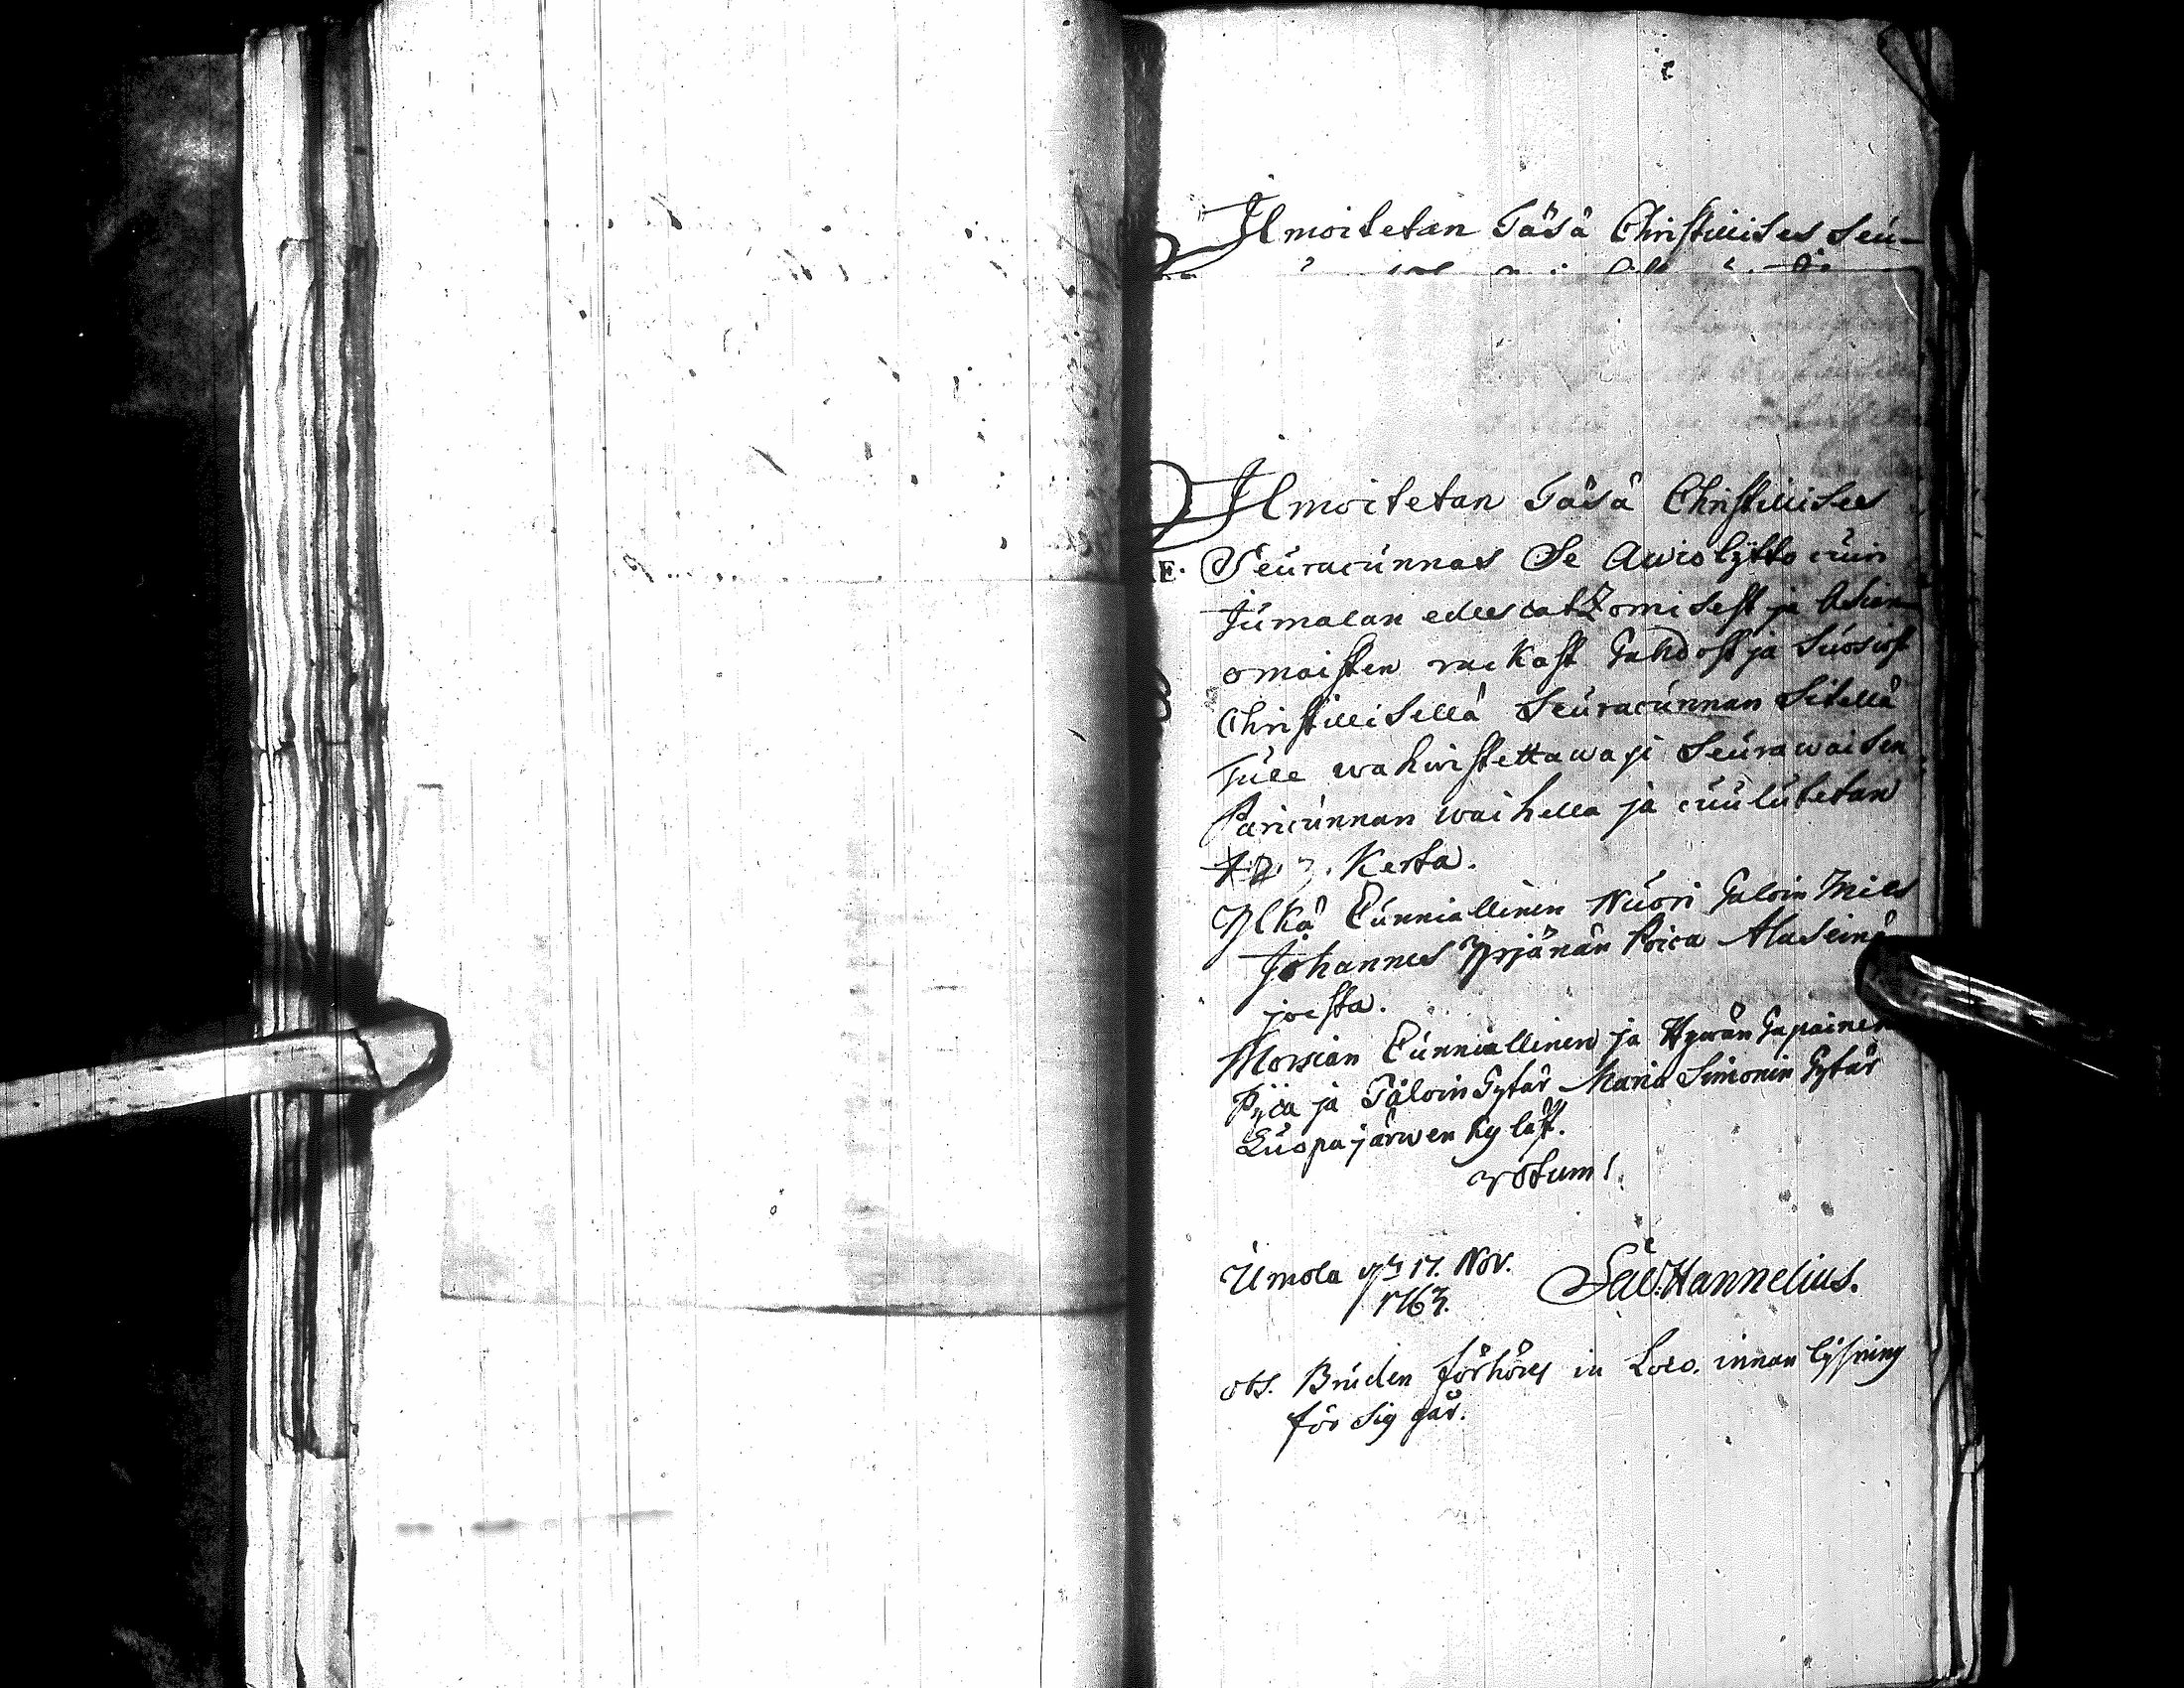 Ilmoitetan Täsä Christillises Seu-
Ilmoitetan Täsä Christillises
E. Seuracunnas Se Awiolijtto cuin
Jumalan edescatZomisest ja Asian
omaisten rackast Tahdost ja Suosiost
Christillisellä Seuracunnan Sitellä
Tule wahwistettawaxi Seurawaisen
Paricunnan waihella ja cuulutetan
1. 2. 3. Kerta.
Ylkä Cunniallinen Nuori Taloin Mies
Johannes Yrjänän Poica Alaseinä
joesta.
Morsian Cunniallinen ja Hywän Tapainen
Pijca ja Taloin Tytär Maria Simonin Tytär
Luopajärwen kyläst.
votum!
Umola 17. Nov.
1763.
Sal. Hannelius.
obs. Bruden förhöres in Loco. innan lysning
för sig går.